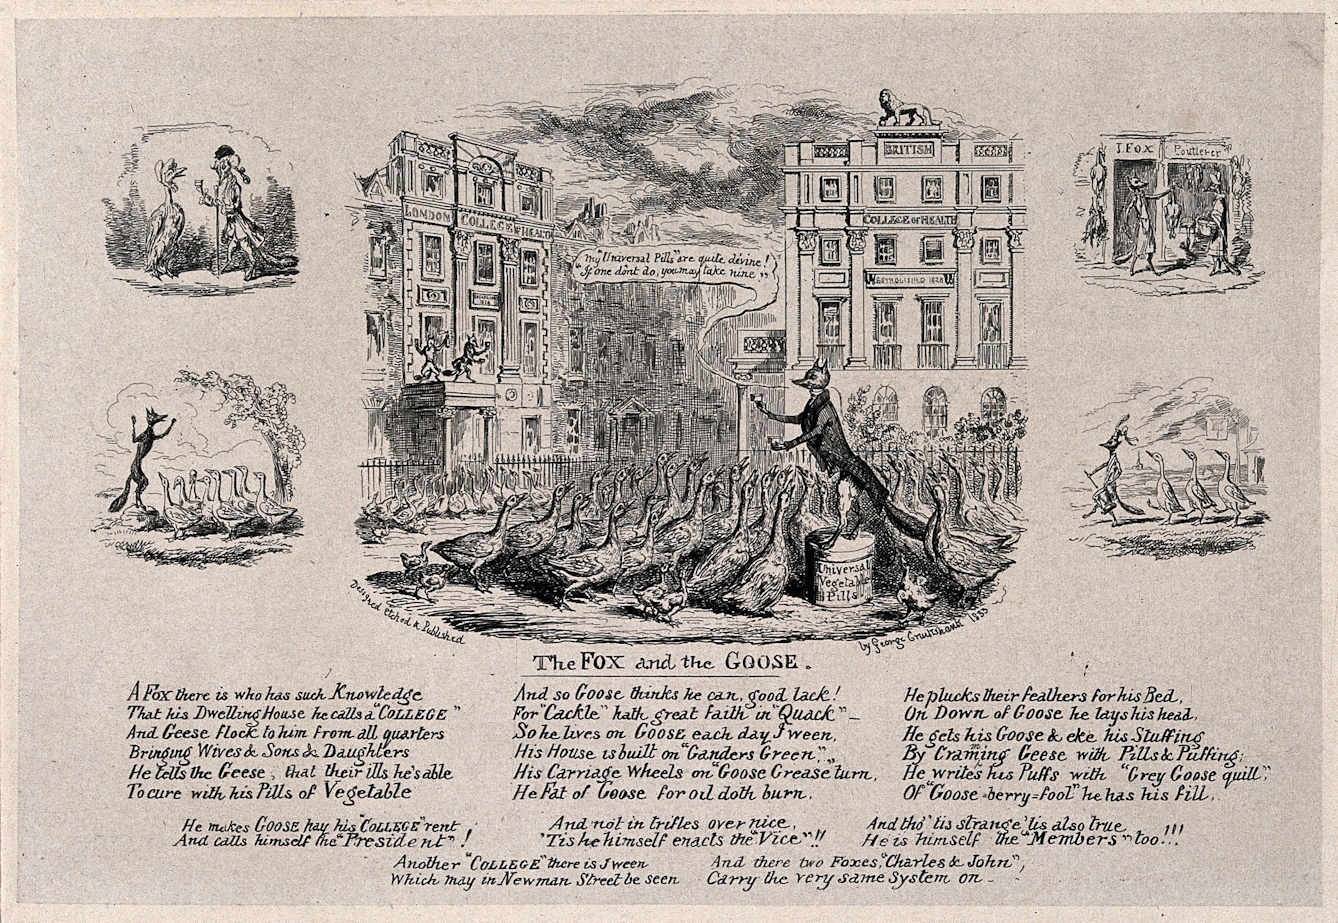 J. FOX Poulterer
BRITISH
LONDON COLLEGE OF HEALTH
COLLEGE OF HEALTH
ESTABLISHED 1828
"My Universal Pills" are quite devine!
"If one dont do, you may take nine"
Universal
Vegetable
Pills
Designed Etched & Published
by George Cruikshank 1833
The FOX and the GOOSE.
A Fox there is who has such Knowledge
That his Dwelling House he calls a "COLLEGE"
And Geese flock to him from all quarters
Bringing Wives & Sons & Daughters
He tells the Geese, that their ills he's able
To cure with his Pills of Vegetable
And so Goose thinks he can, good lack!
For "Cackle" hath great faith in "Quack" –
So he lives on GOOSE each day I ween,
His House is built on "Ganders Green",
His Carriage Wheels on "Goose Grease turn,
He Fat of Goose for oil doth burn,
He plucks their feathers for his Bed,
On Down of Goose he lays his head,
He gets his Goose & eke his Stuffing
By Craming Geese with Pills & Puffing;
He writes his Puffs with "Grey Goose quill",
Of "Goose-berry=fool" he has his fill,
He makes GOOSE pay his "COLLEGE" rent
And calls himself the "President"!
And not in trifles over nice,
'Tis he himself enacts the "Vice"!!
And tho' 'tis strange 'tis also true
He is himself the "Members" too...!!!
Another "COLLEGE" there is I ween
Which may in Newman Street be seen
And there two Foxes, "Charles & John",
Carry the very same System on –